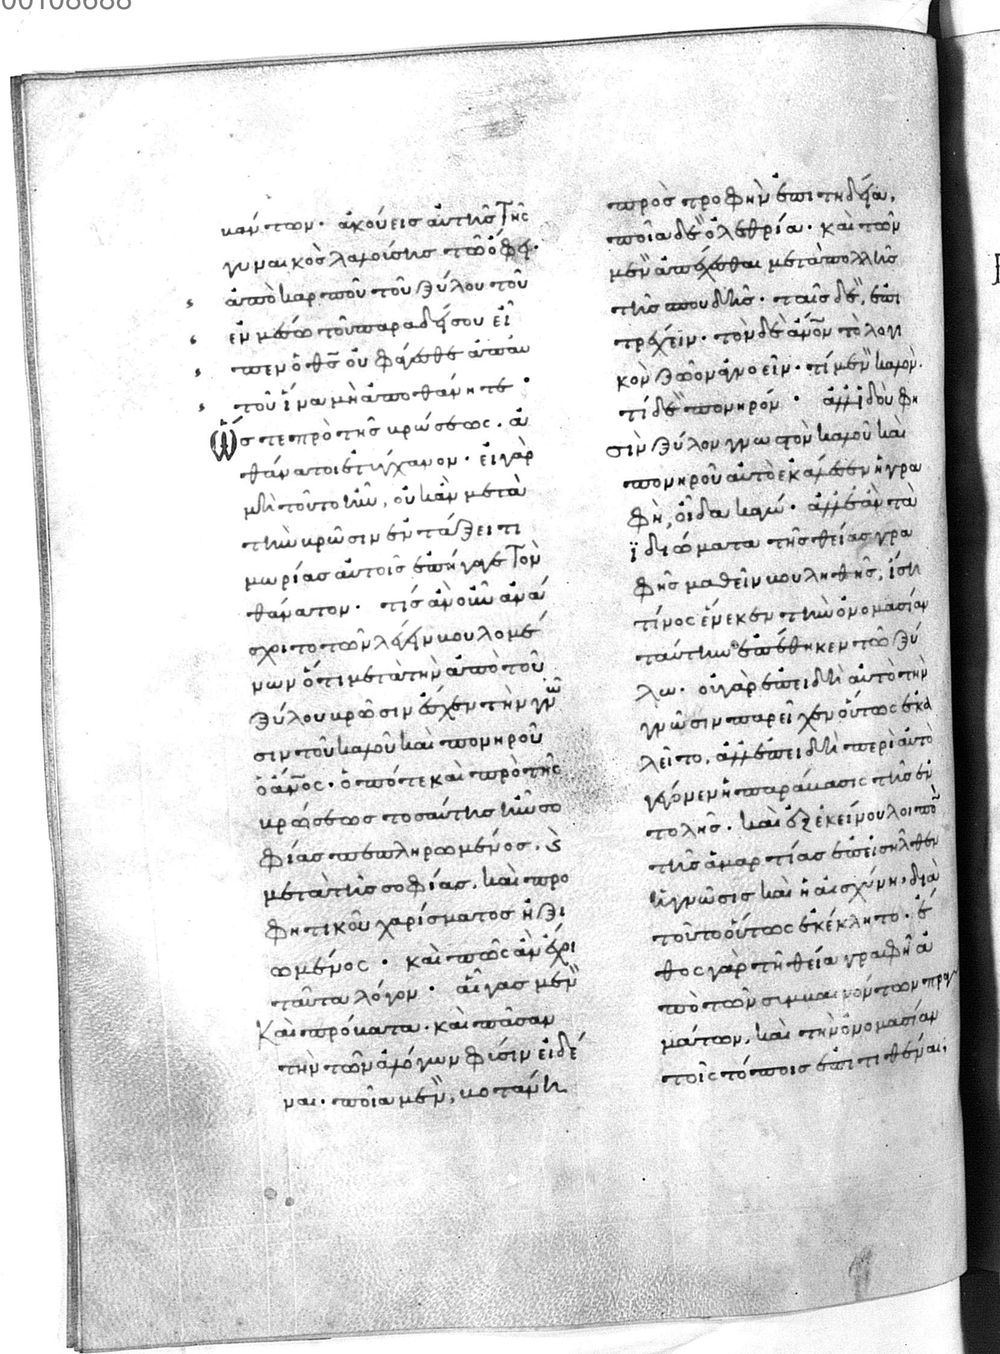 00108688
πάντων· ἀκούεις αὐτῆς τῆς
γυναικὸς λαλούσης τῶ ὄφει·
ἀπὸ καρποῦ τοῦ ξύλου τοῦ
ἐν μέσω τοῦ παραδείσου εἶ
πεν ὁ θς οὐ φάγεσθε ἀπ' αὐ
τοῦ ἵνα μὴ ἀποθάνητε·
Ὥστε πρὸ τῆς βρώσεως. ἀ
θάνατοι ἐτύγχανον· εἰ γὰρ
μὴ τοῦτο ἦν, οὐκ ἂν μετὰ
τὴν βρῶσιν ἐν τάξει τι
μωρίας αὐτοῖς ἐπήγαγε τὸν
θάνατον· τίς ἂν οὖν ἀνά
σχοιτο τῶν λέγειν βουλομέ
νων ὅτι μετὰ τὴν ἀπὸ τοῦ
ξύλου βρῶσιν ἔσχεν τὴν γνῶ
σιν τοῦ καλοῦ καὶ πονηροῦ
ὁ ἄνος· ὁπότε καὶ πρὸ τῆς
βρώσεως τοσαύτης ἦν σο
φίας πεπληρωμένος. καὶ
μετὰ τῆς σοφίας. καὶ προ
φητικοῦ χαρίσματος ἠξι
ωμένος· καὶ πῶς ἂν ἔχοι
ταῦτα λόγον· αἶγας μὲν
καὶ πρόβατα· καὶ πᾶσαν
τὴν τῶν ἀλόγων φύσιν εἰδέ
ναι· ποῖα μὲν, βοτάνη
πρὸς τροφὴν ἐπιτηδεία,
ποῖα δὲ ὀλεθρία· καὶ τῶν
μὲν ἀπέχεσθαι μετὰ πολλῆς
τῆς σπουδῆς· ταῖς δὲ, ἐπι
τρέχειν· τὸν δὲ ἄνον τὸ λογι
κὸν ζῶον ἀγνοεῖν· τί μὲν καλὸν.
τί δὲ πονηρόν· ἀλλ' ἰδοὺ φη
σὶν ξύλον γνωστὸν καλοῦ καὶ
πονηροῦ αὐτὸ ἐκάλεσεν ἡ γρα
φὴ, οἶδα κἀγώ· ἀλλ' ἐὰν τὰ
ἰδιώματα τῆς θείας γρα
φῆς μαθεῖν βουληθῆς, εἴση
τίνος ἕνεκεν τὴν ὀνομασίαν
ταύτην ἐπέθηκεν τῶ ξύ
λω· οὐ γὰρ ἐπειδὴ αὐτὸ τὴν
γνῶσιν παρεῖχεν οὕτως ἐκα
λεῖτο, ἀλλ' ἐπειδὴ περὶ αὐτὸ
γέγονεν ἡ παράβασις τῆς ἐν
τολῆς. καὶ ἐξ ἐκείνου λοιπὸν
τῆς ἁμαρτίας ἐπεισῆλθεν
ἡ γνῶσις καὶ ἡ αἰσχύνη, διὰ
τοῦτο οὕτως ἐκέκλητο· ἔ
θος γὰρ τῆ θεία γραφῆ ἀ
πὸ τῶν συμβαινόντων πραγ
μάτων, καὶ τὴν ὀνομασίαν
τοῖς τόποις ἐπιτιθέναι,